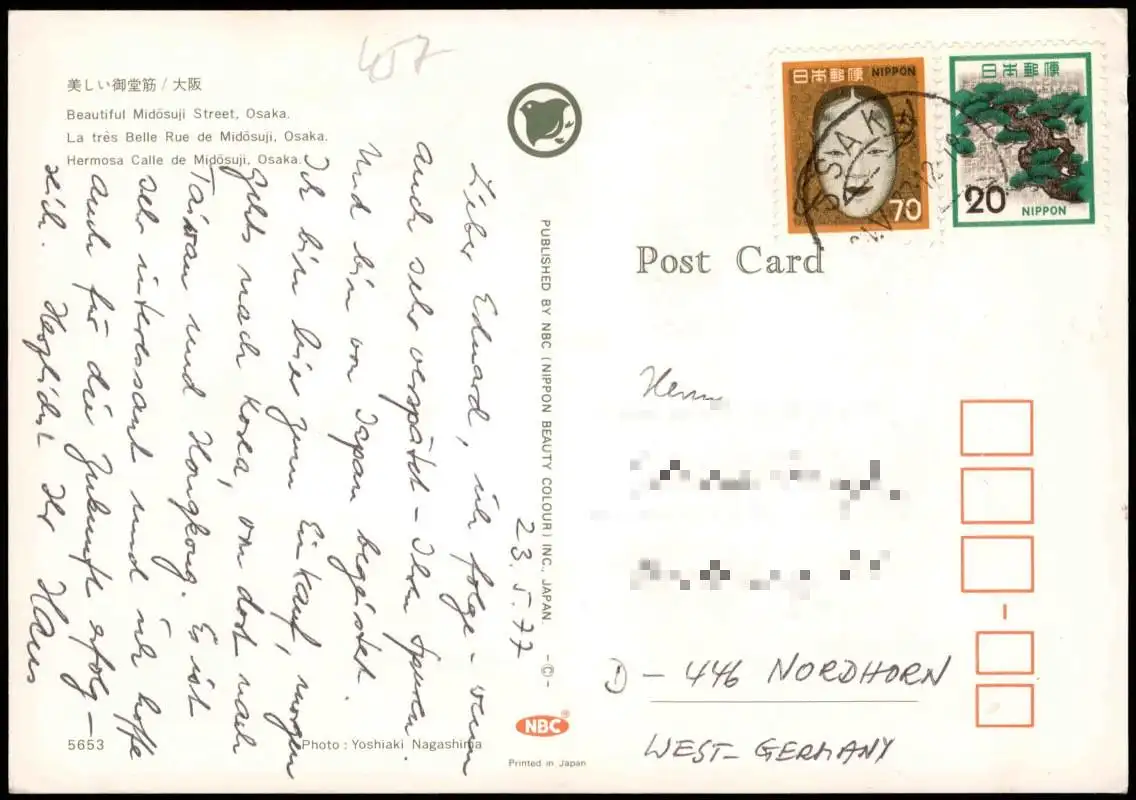 457
美しい御堂筋 / 大阪
Beautiful Midōsuji Street, Osaka.
La très Belle Rue de Midōsuji, Osaka.
Hermosa Calle de Midōsuji, Osaka.
23.5.77
Lieber Eduard, ich folge - wenn
auch sehr verspätet - Ihren Spuren.
Und bin von Japan begeistert.
Ich bin hier zum Einkauf, morgen
gehts nach Korea, von dort nach
Taiwan und Hongkong. Es ist
sehr interessant und ich hoffe
auch für die Zukunft erfolg-
reich. Herzlichst Ihr Hans
5653
Photo : Yoshiaki Nagashima
PUBLISHED BY NBC (NIPPON BEAUTY COLOUR) INC. JAPAN. -©-
NBC
®
Printed in Japan
日本郵便 NIPPON
70
日本郵便
20
NIPPON
OSAKA
Post Card
Herrn
D - 446 NORDHORN
WEST-GERMANY